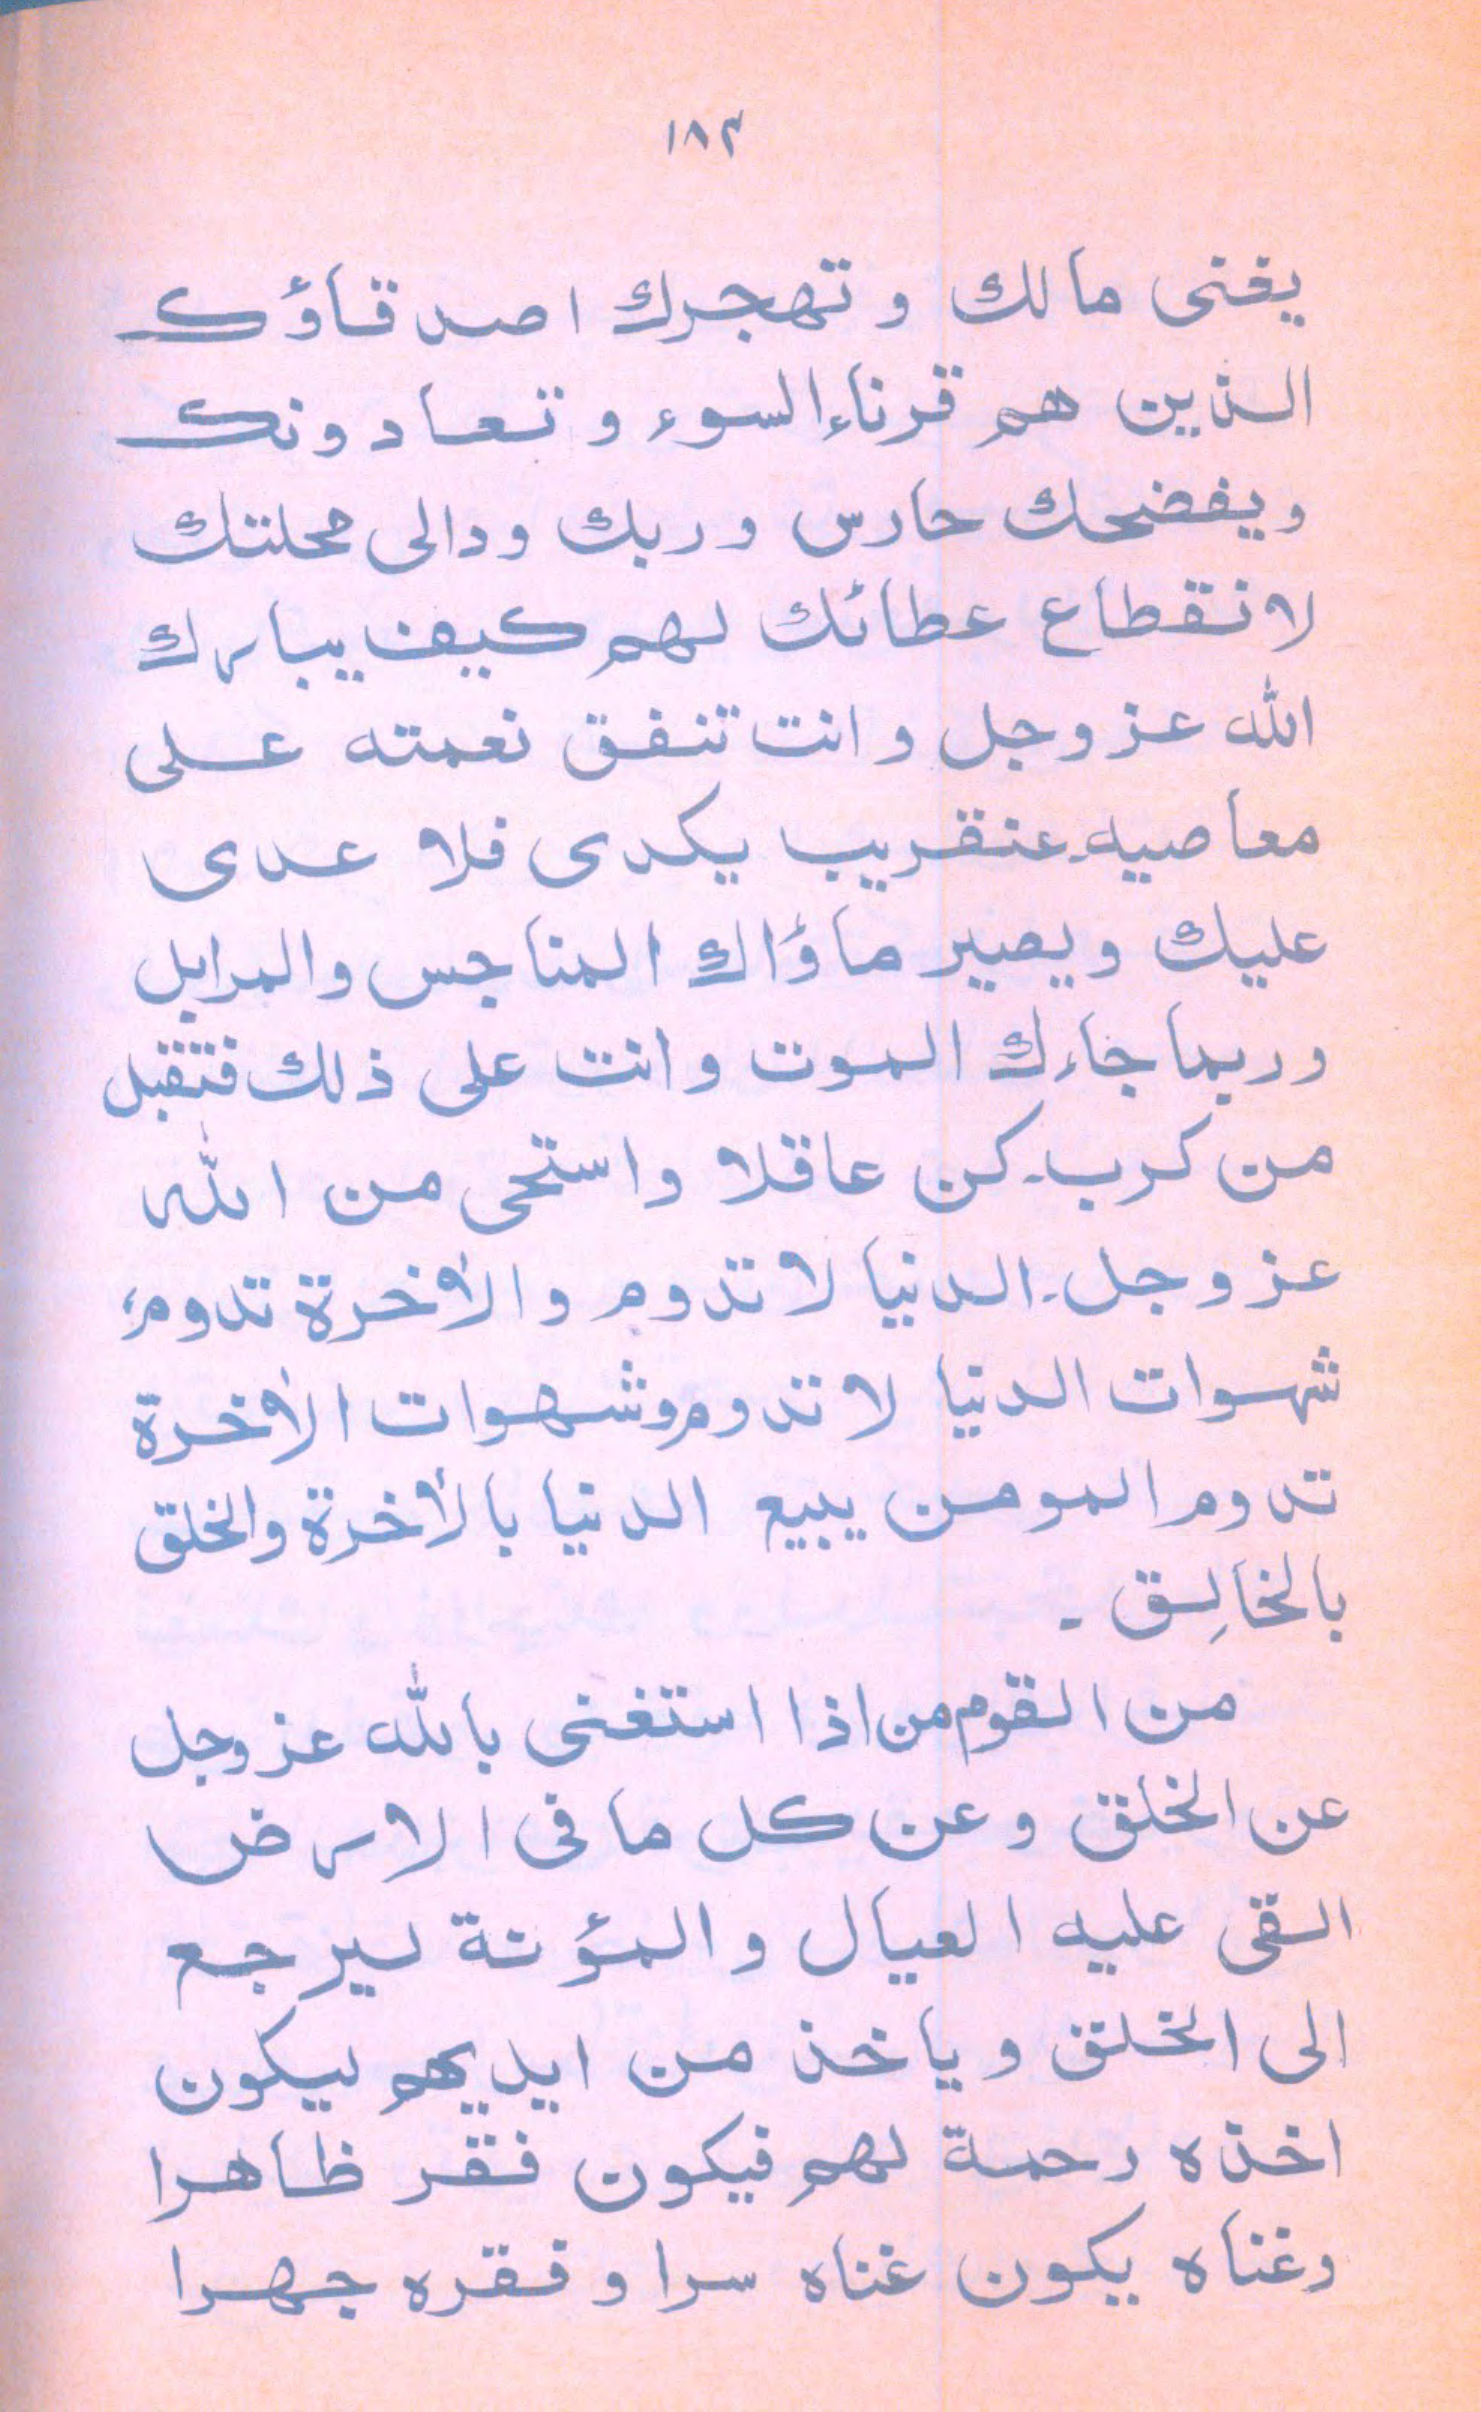 ١٨٣
يفنى مالك و تهجرك اصدقاؤك
الذين هم قرناء السوء و تعادونك
ويفضحك حارس وربك ودالى محلتك
لانقطاع عطائك لهم كيف يبارك
الله عز وجل و انت تنفق نعمته على
معاصيه۔ عنقريب يكدى فلا عدى
عليك ويصير ماؤاك المناجس والمرابل
وربما جاءك الموت وانت على ذلك فتقبل
من كرب۔ كن عاقلا واستحى من الله
عز وجل۔ الدنيا لا تدوم والأخرة تدوم،
شهوات الدنيا لا تدوم وشهوات الأخرة
تدوم المومن يبيع الدنيا بالأخرة والخلق
بالخالِق ۔
من القوم من اذا استغنى بالله عز وجل
عن الخلق وعن كل ما فى الارض
القى عليه العيال والمؤنة ليرجع
الى الخلق وياخذ من ايديهم ليكون
اخذه رحمة لهم فيكون فقر ظاهرا
وغناه يكون غناه سرا و فقره جهرا